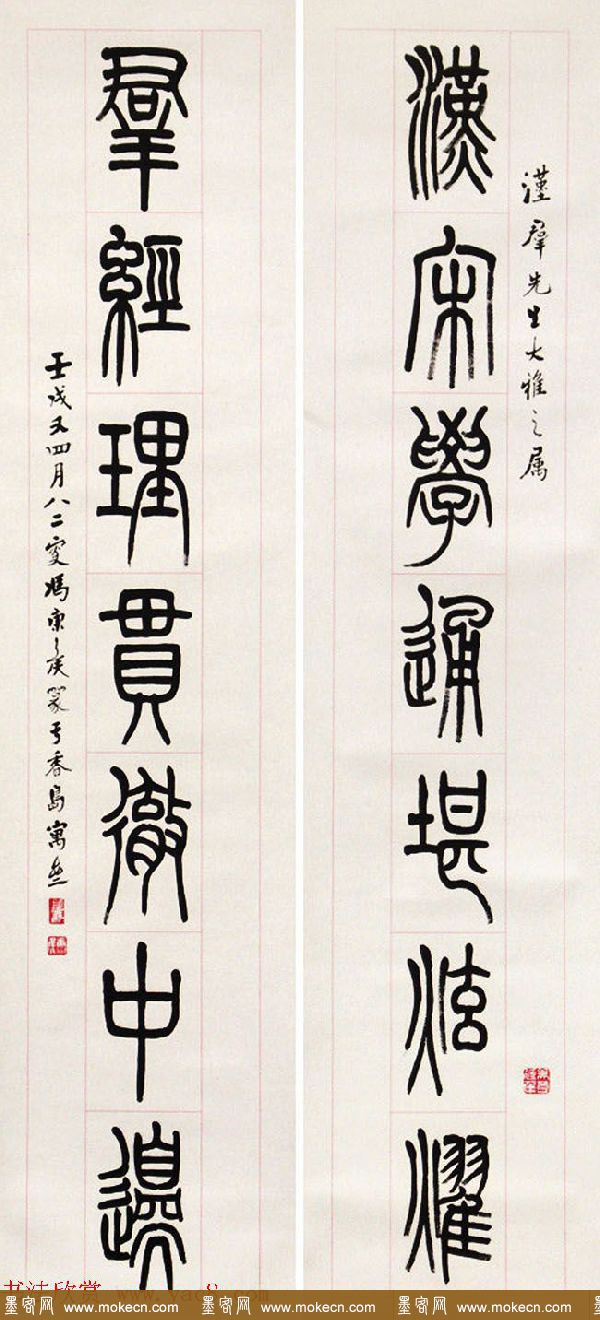 漢宋學通堪炫燿
漢羣先生大雅之属
羣經理貫徹中邊
壬戌又四月八二叟馮康矦篆于香島寓樓
书法欣赏 www.yac8
墨客网 www.mokecn.com 墨客网 www.mokecn.com 墨客网 www.mokecn.com